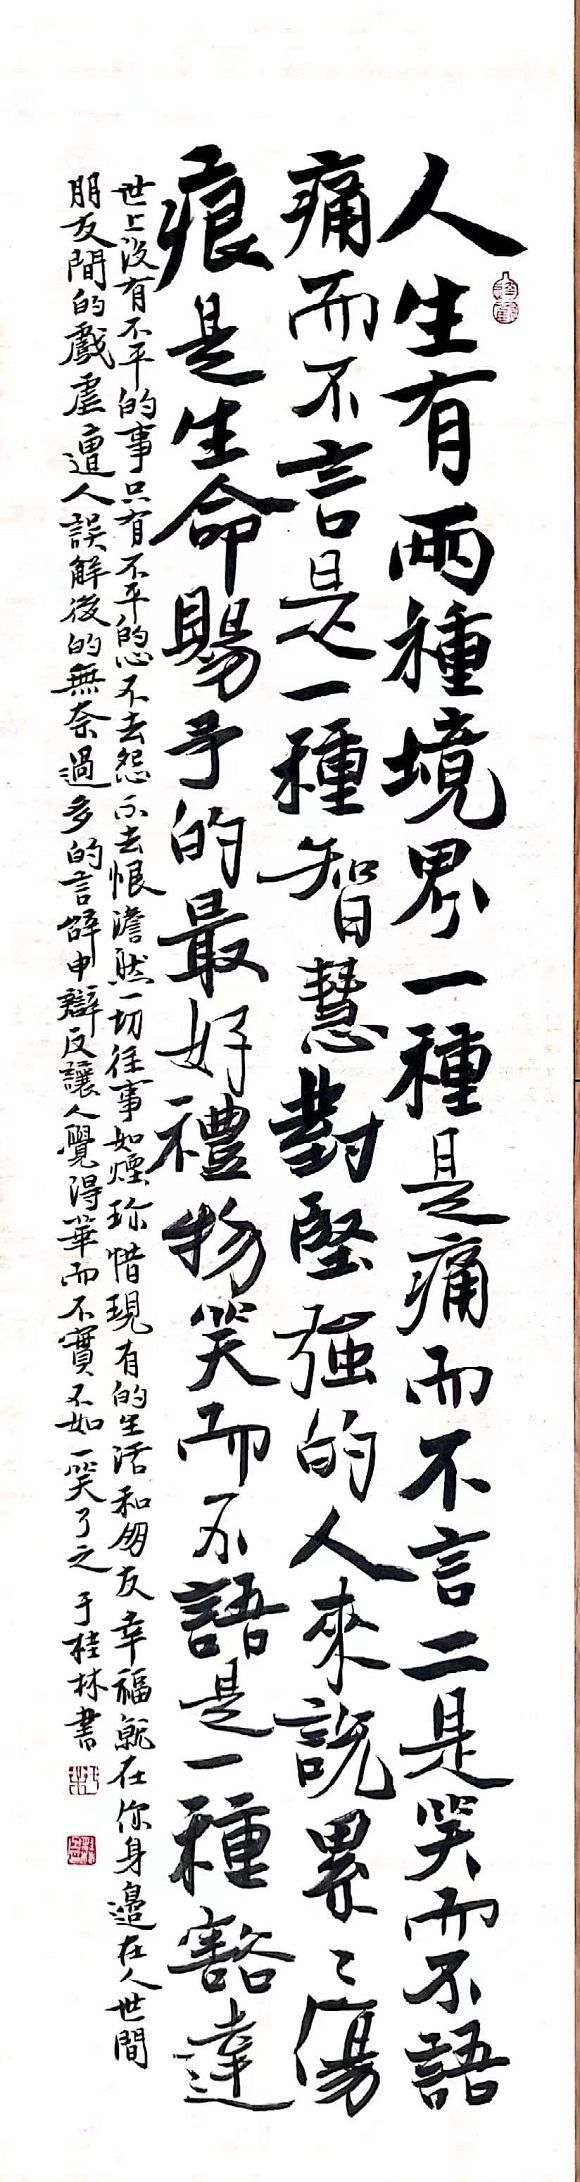 人生有兩種境界一種是痛而不言二是笑而不語
痛而不言是一種智慧對堅強的人來説累〻傷
痕是生命賜予的最好禮物笑而不語是一種豁達
世上沒有不平的事只有不平的心不去怨不去恨澹然一切往事如煙珍惜現有的生活和朋友幸福就在你身邊在人世間
朋友間的戲虐遭人誤解後的無奈過多的言辭申辯反讓人覺得華而不實不如一笑了之 于桂林書